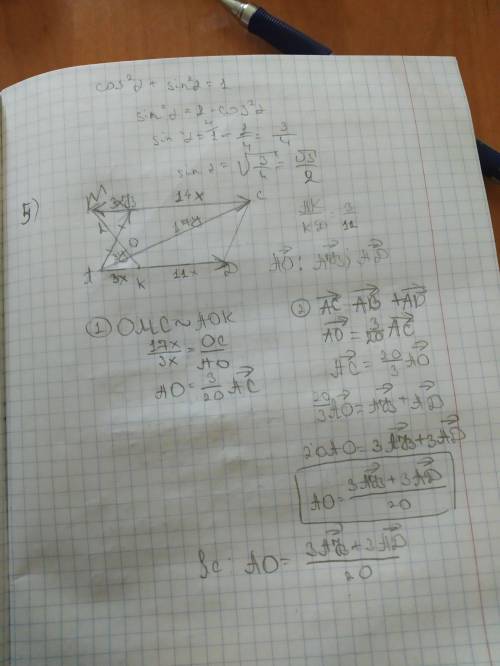 cos²α + sin²α = 1
sin²α = 1 - cos²α
sin²α = 1 - 1/4 = 3/4
sin α = √(3/4) = √3/2
5)
M 3x B 14x C
17y
O
3y
A 3x K 11x D
AK/KD = 3/11
AO; AB; AD
① OMC ~ AOK
17x/3x = OC/AO
AO = 3/20 AC
② AC = AB + AD
AO = 3/20 AC
AC = 20/3 AO
20/3 AO = AB + AD
20AO = 3AB + 3AD
AO = (3AB + 3AD)/20
AO = (3AB + 3AD)/20